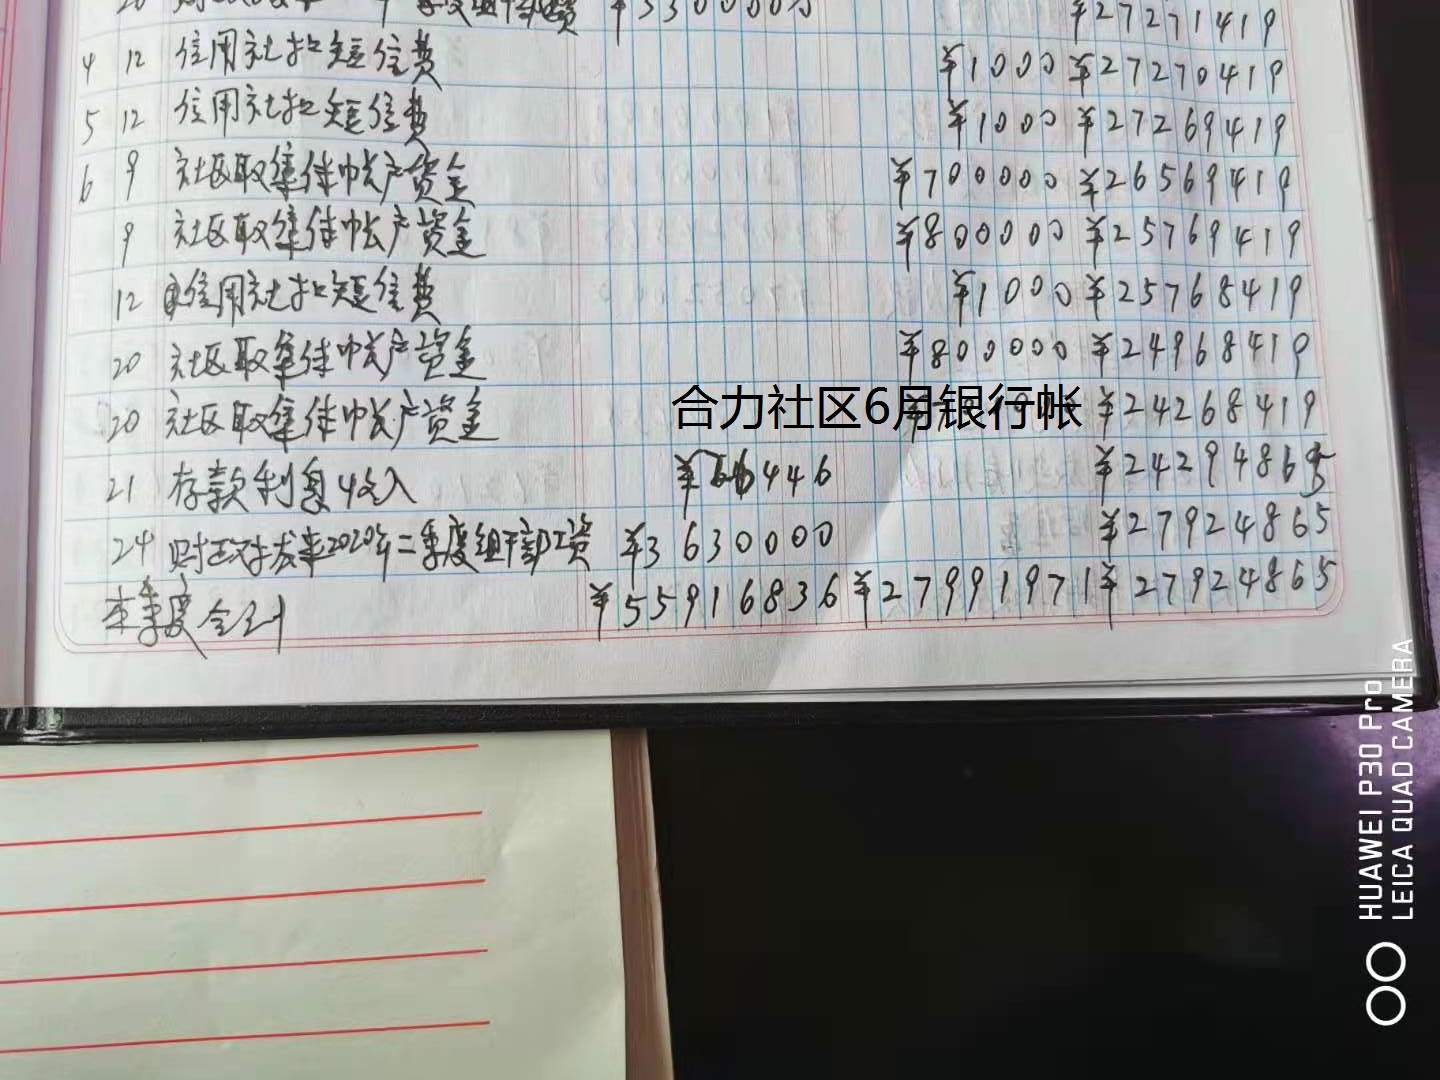 ¥5300000 ¥27271419
4 12 信用社扣短信费 ¥1000 ¥27270419
5 12 信用社扣短信费 ¥1000 ¥27269419
6 9 社区取集体帐户资金 ¥700000 ¥26569419
9 社区取集体帐户资金 ¥800000 ¥25769419
12 信用社扣短信费 ¥1000 ¥25768419
20 社区取集体帐户资金 ¥800000 ¥24968419
20 社区取集体帐户资金 ¥24268419
合力社区6月银行帐
21 存款利息收入 ¥ 446 ¥24294865
24 财政拨来2020年二季度组干部工资 ¥3630000 ¥27924865
本季度合计 ¥55916836 ¥27991971 ¥27924865
HUAWEI P30 Pro
LEICA QUAD CAMERA